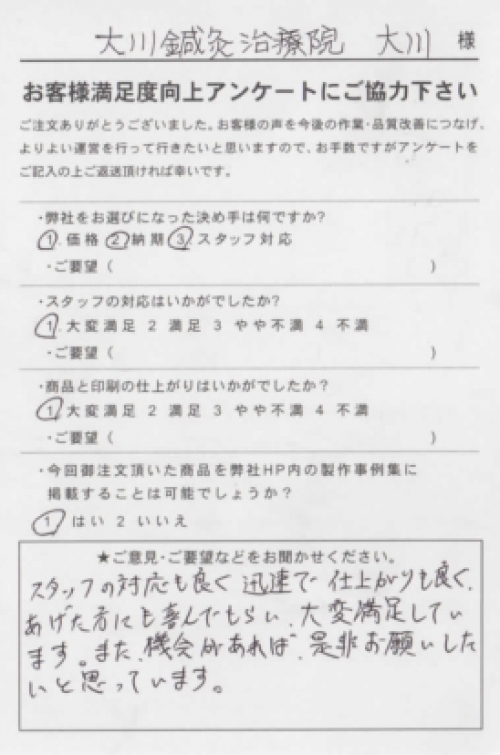 大川鍼灸治療院 大川 様
お客様満足度向上アンケートにご協力下さい
ご注文ありがとうございました。お客様の声を今後の作業・品質改善につなげ、
よりよい運営を行って行きたいと思いますので、お手数ですがアンケートを
ご記入の上ご返送頂ければ幸いです。
・弊社をお選びになった決め手は何ですか?
1. 価格 2 納期 3. スタッフ対応
・ご要望 ( )
・スタッフの対応はいかがでしたか?
1. 大変満足 2 満足 3 やや不満 4 不満
・ご要望 ( )
・商品と印刷の仕上がりはいかがでしたか?
1. 大変満足 2 満足 3 やや不満 4 不満
・ご要望 ( )
・今回御注文頂いた商品を弊社HP内の製作事例集に
掲載することは可能でしょうか?
1 はい 2 いいえ
★ご意見・ご要望などをお聞かせください。
スタッフの対応も良く 迅速で 仕上がりも良く、
あげた方にも喜んでもらい、大変満足してい
ます。また、機会があれば、是非お願いした
いと思っています。